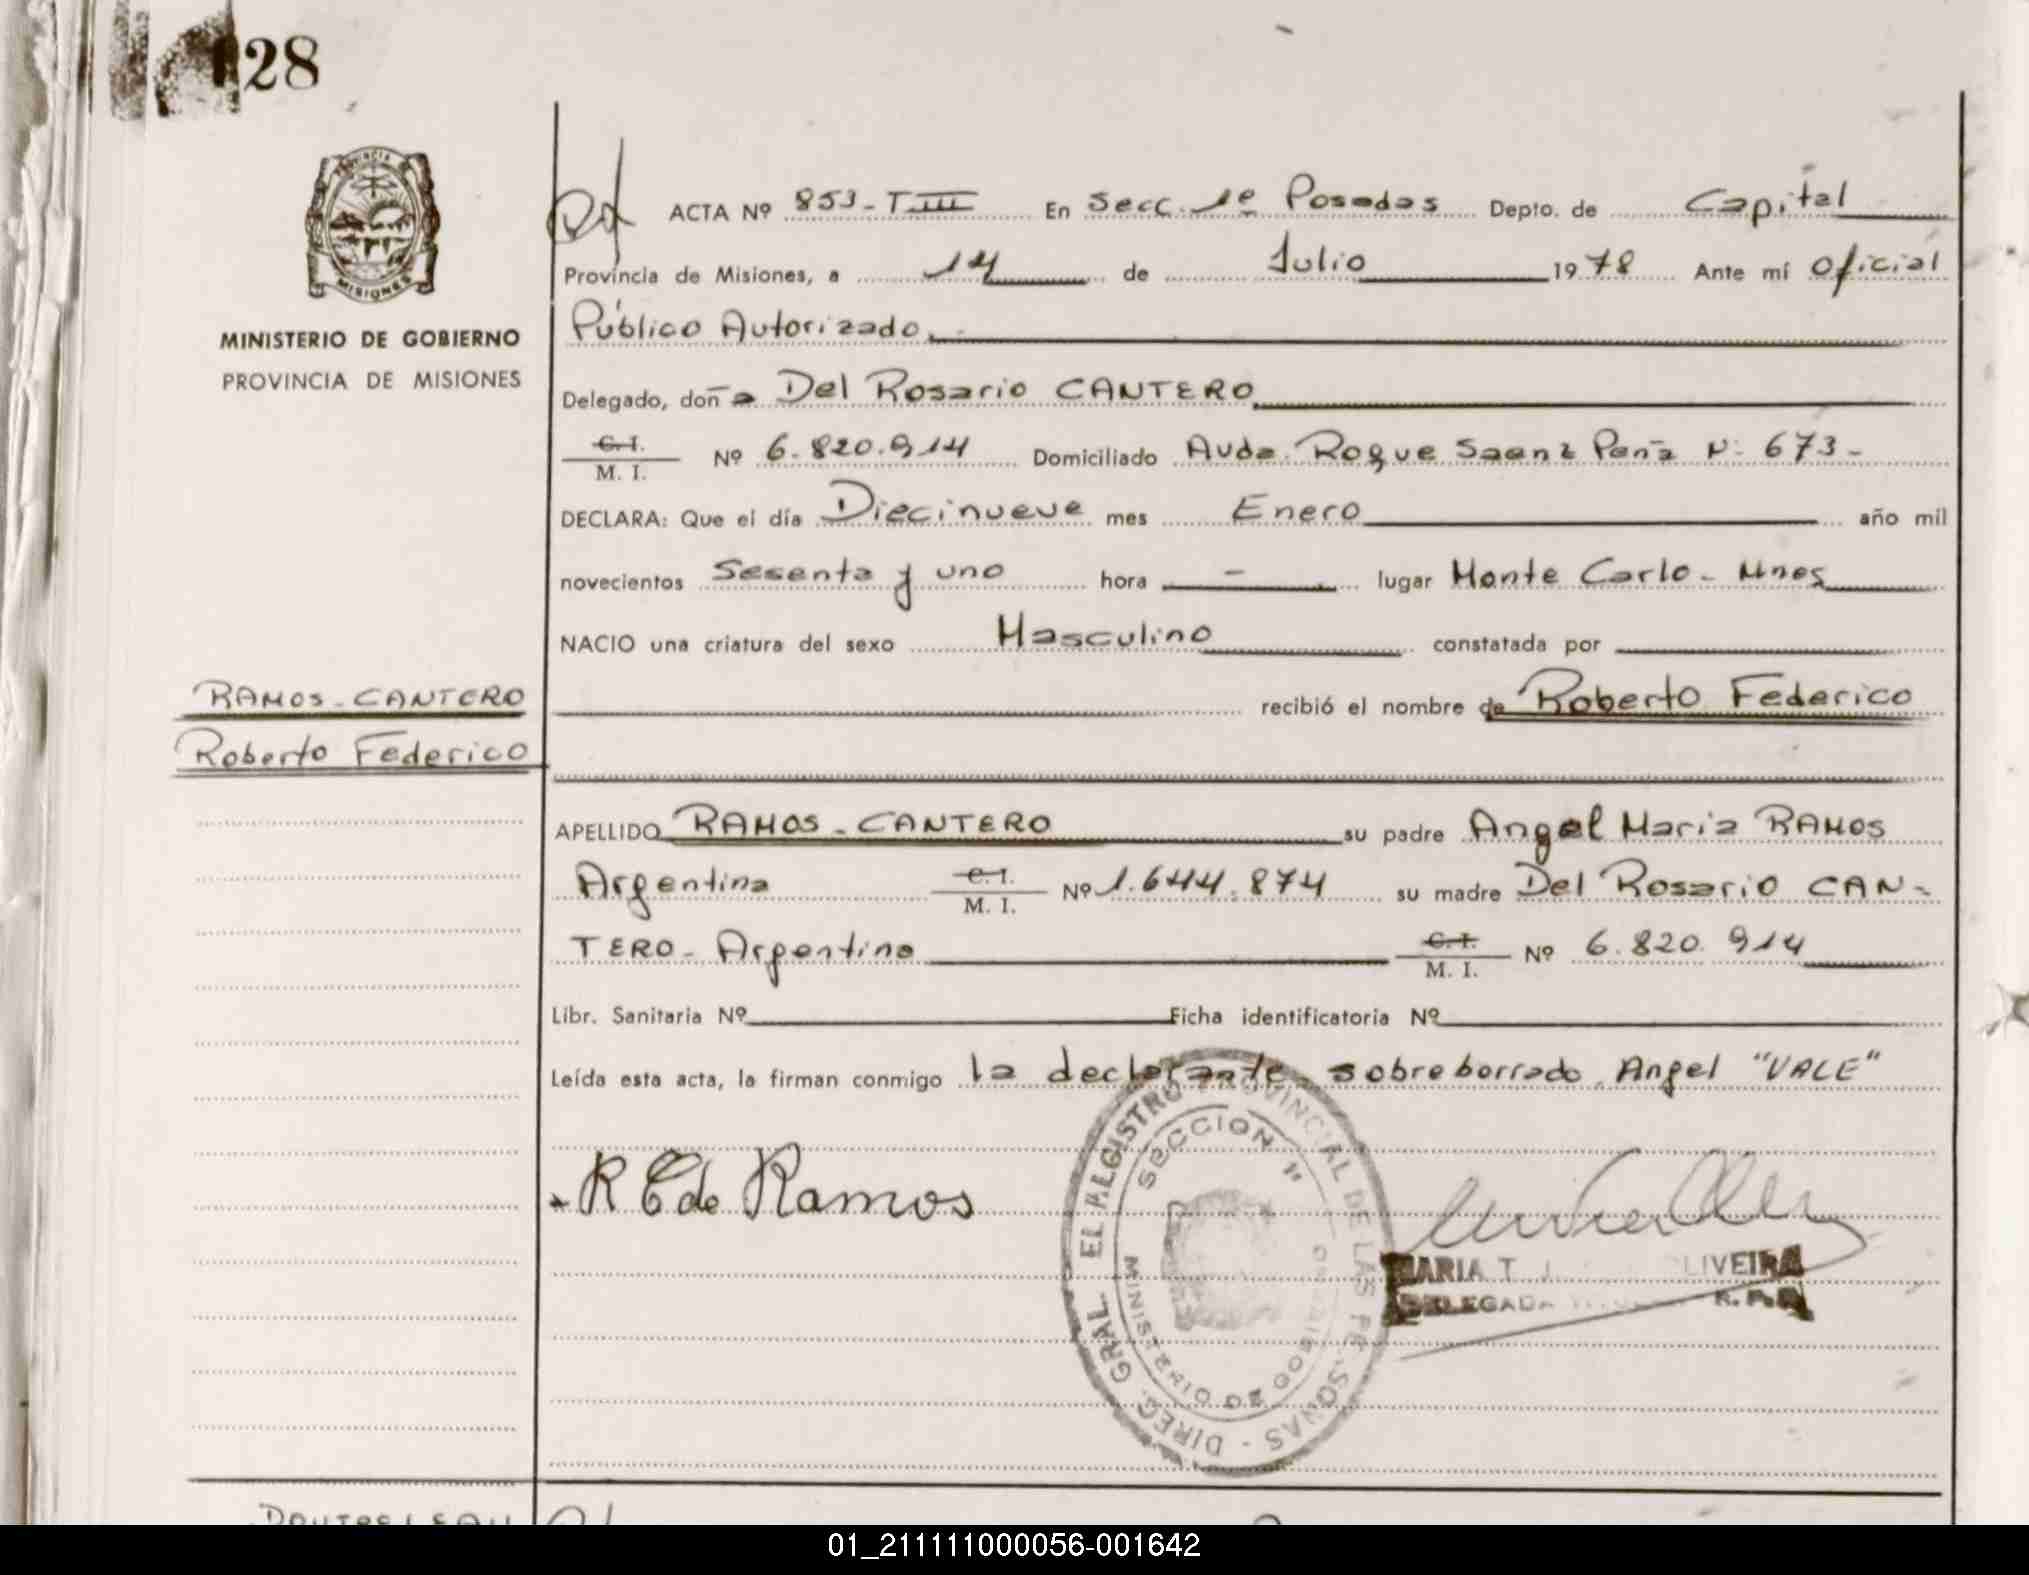 128
PROVINCIA DE
MISIONES
MINISTERIO DE GOBIERNO
PROVINCIA DE MISIONES
ACTA Nº 853-TIII En Secc. 1º Posadas Depto. de Capital
Provincia de Misiones, a 14 de Julio 1978 Ante mí Oficial
Público Autorizado.-
Delegado, doña Del Rosario CANTERO
C. I.
M. I. Nº 6.820.914 Domiciliado Avda. Roque Saenz Peña Nº 673-
DECLARA: Que el día Diecinueve mes Enero año mil
novecientos Sesenta y uno hora - lugar Monte Carlo- Mnes
NACIO una criatura del sexo Masculino constatada por
RAMOS-CANTERO
recibió el nombre de Roberto Federico
Roberto Federico
APELLIDO RAMOS-CANTERO su padre Angel Maria RAMOS
Argentina C. I. M. I. Nº 1.644.874 su madre Del Rosario CAN-
TERO- Argentina C. I. M. I. Nº 6.820.914
Libr. Sanitaria Nº Ficha identificatoria Nº
Leída esta acta, la firman conmigo la declarante. sobreborrado Angel "VALE"
R C de Ramos
DIREC. GRAL. EL REGISTRO PROVINCIAL DE LAS PERSONAS -
SECCION 1ª
MINISTERIO DE GOBIERNO
MARIA T. OLIVEIRA
DELEGADA R. P. P.
01_211111000056-001642